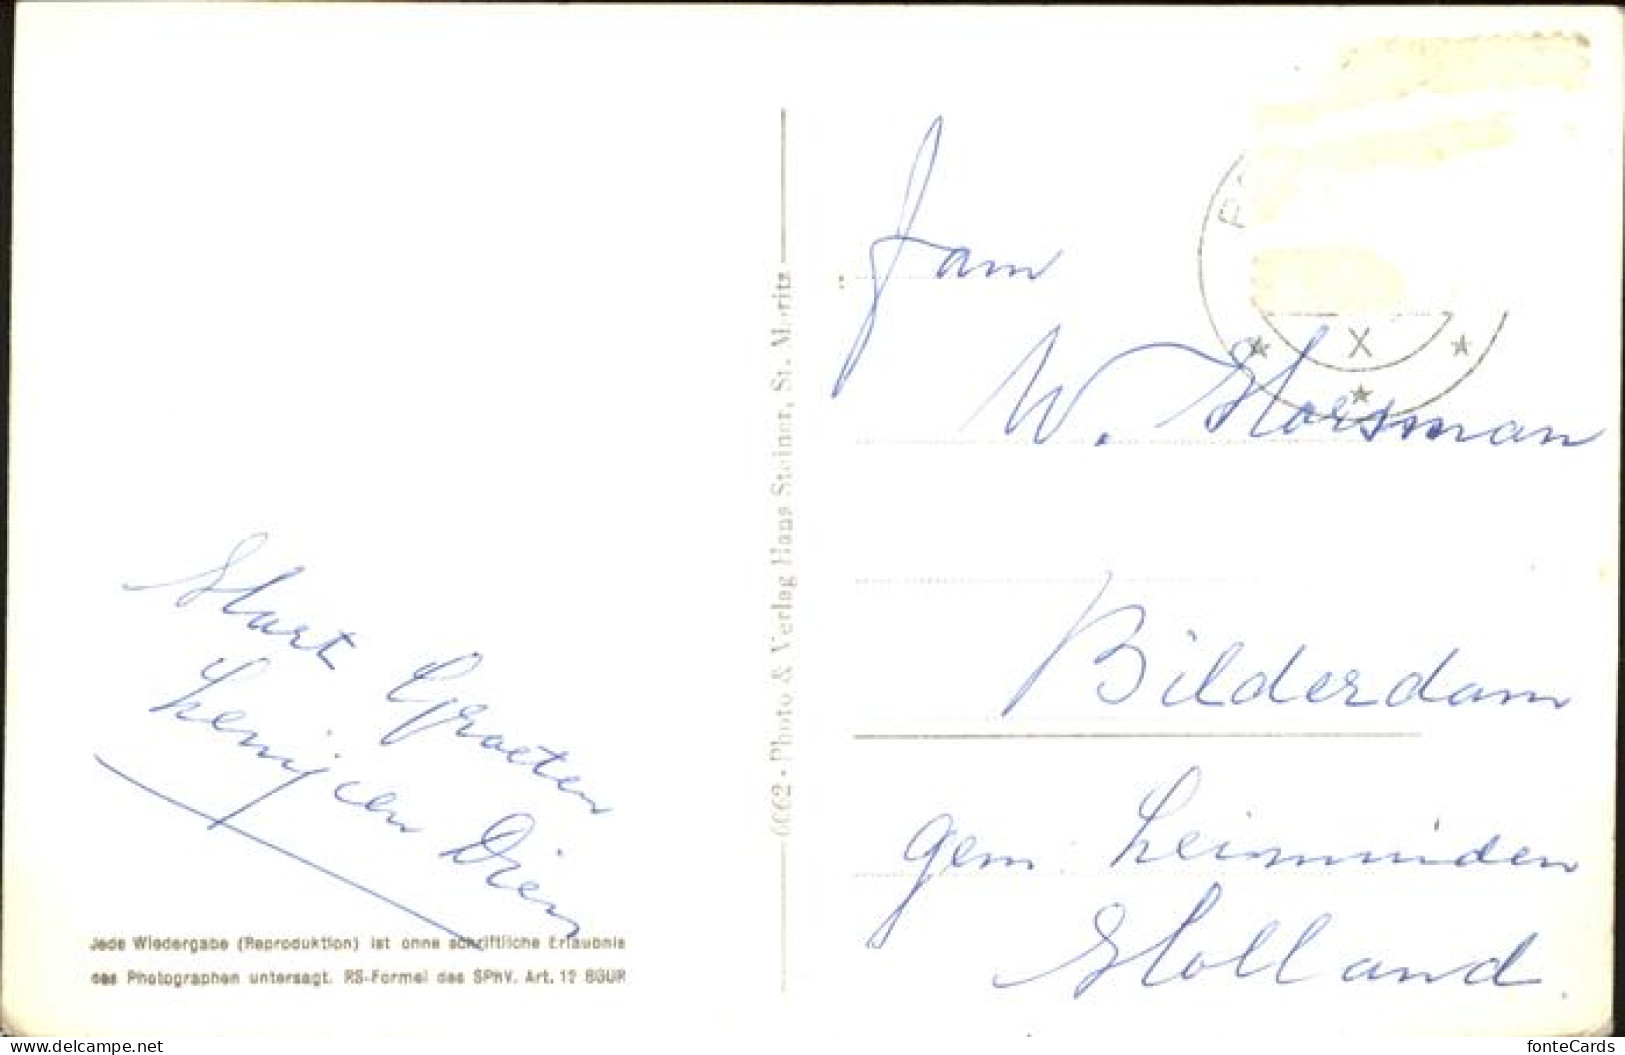 Hart. Groeten
Leenij en Dien
Jede Wiedergabe (Reproduktion) ist ohne schriftliche Erlaubnis
des Photographen untersagt. RS-Formel des SPhV. Art. 12 BGUR
6062 - Photo & Verlag Hans Steiner, St. Moritz
X
Fam
W. Horsman
Bilderdam
gem. Leimuiden
Holland.
delcampe.net
fonteCards